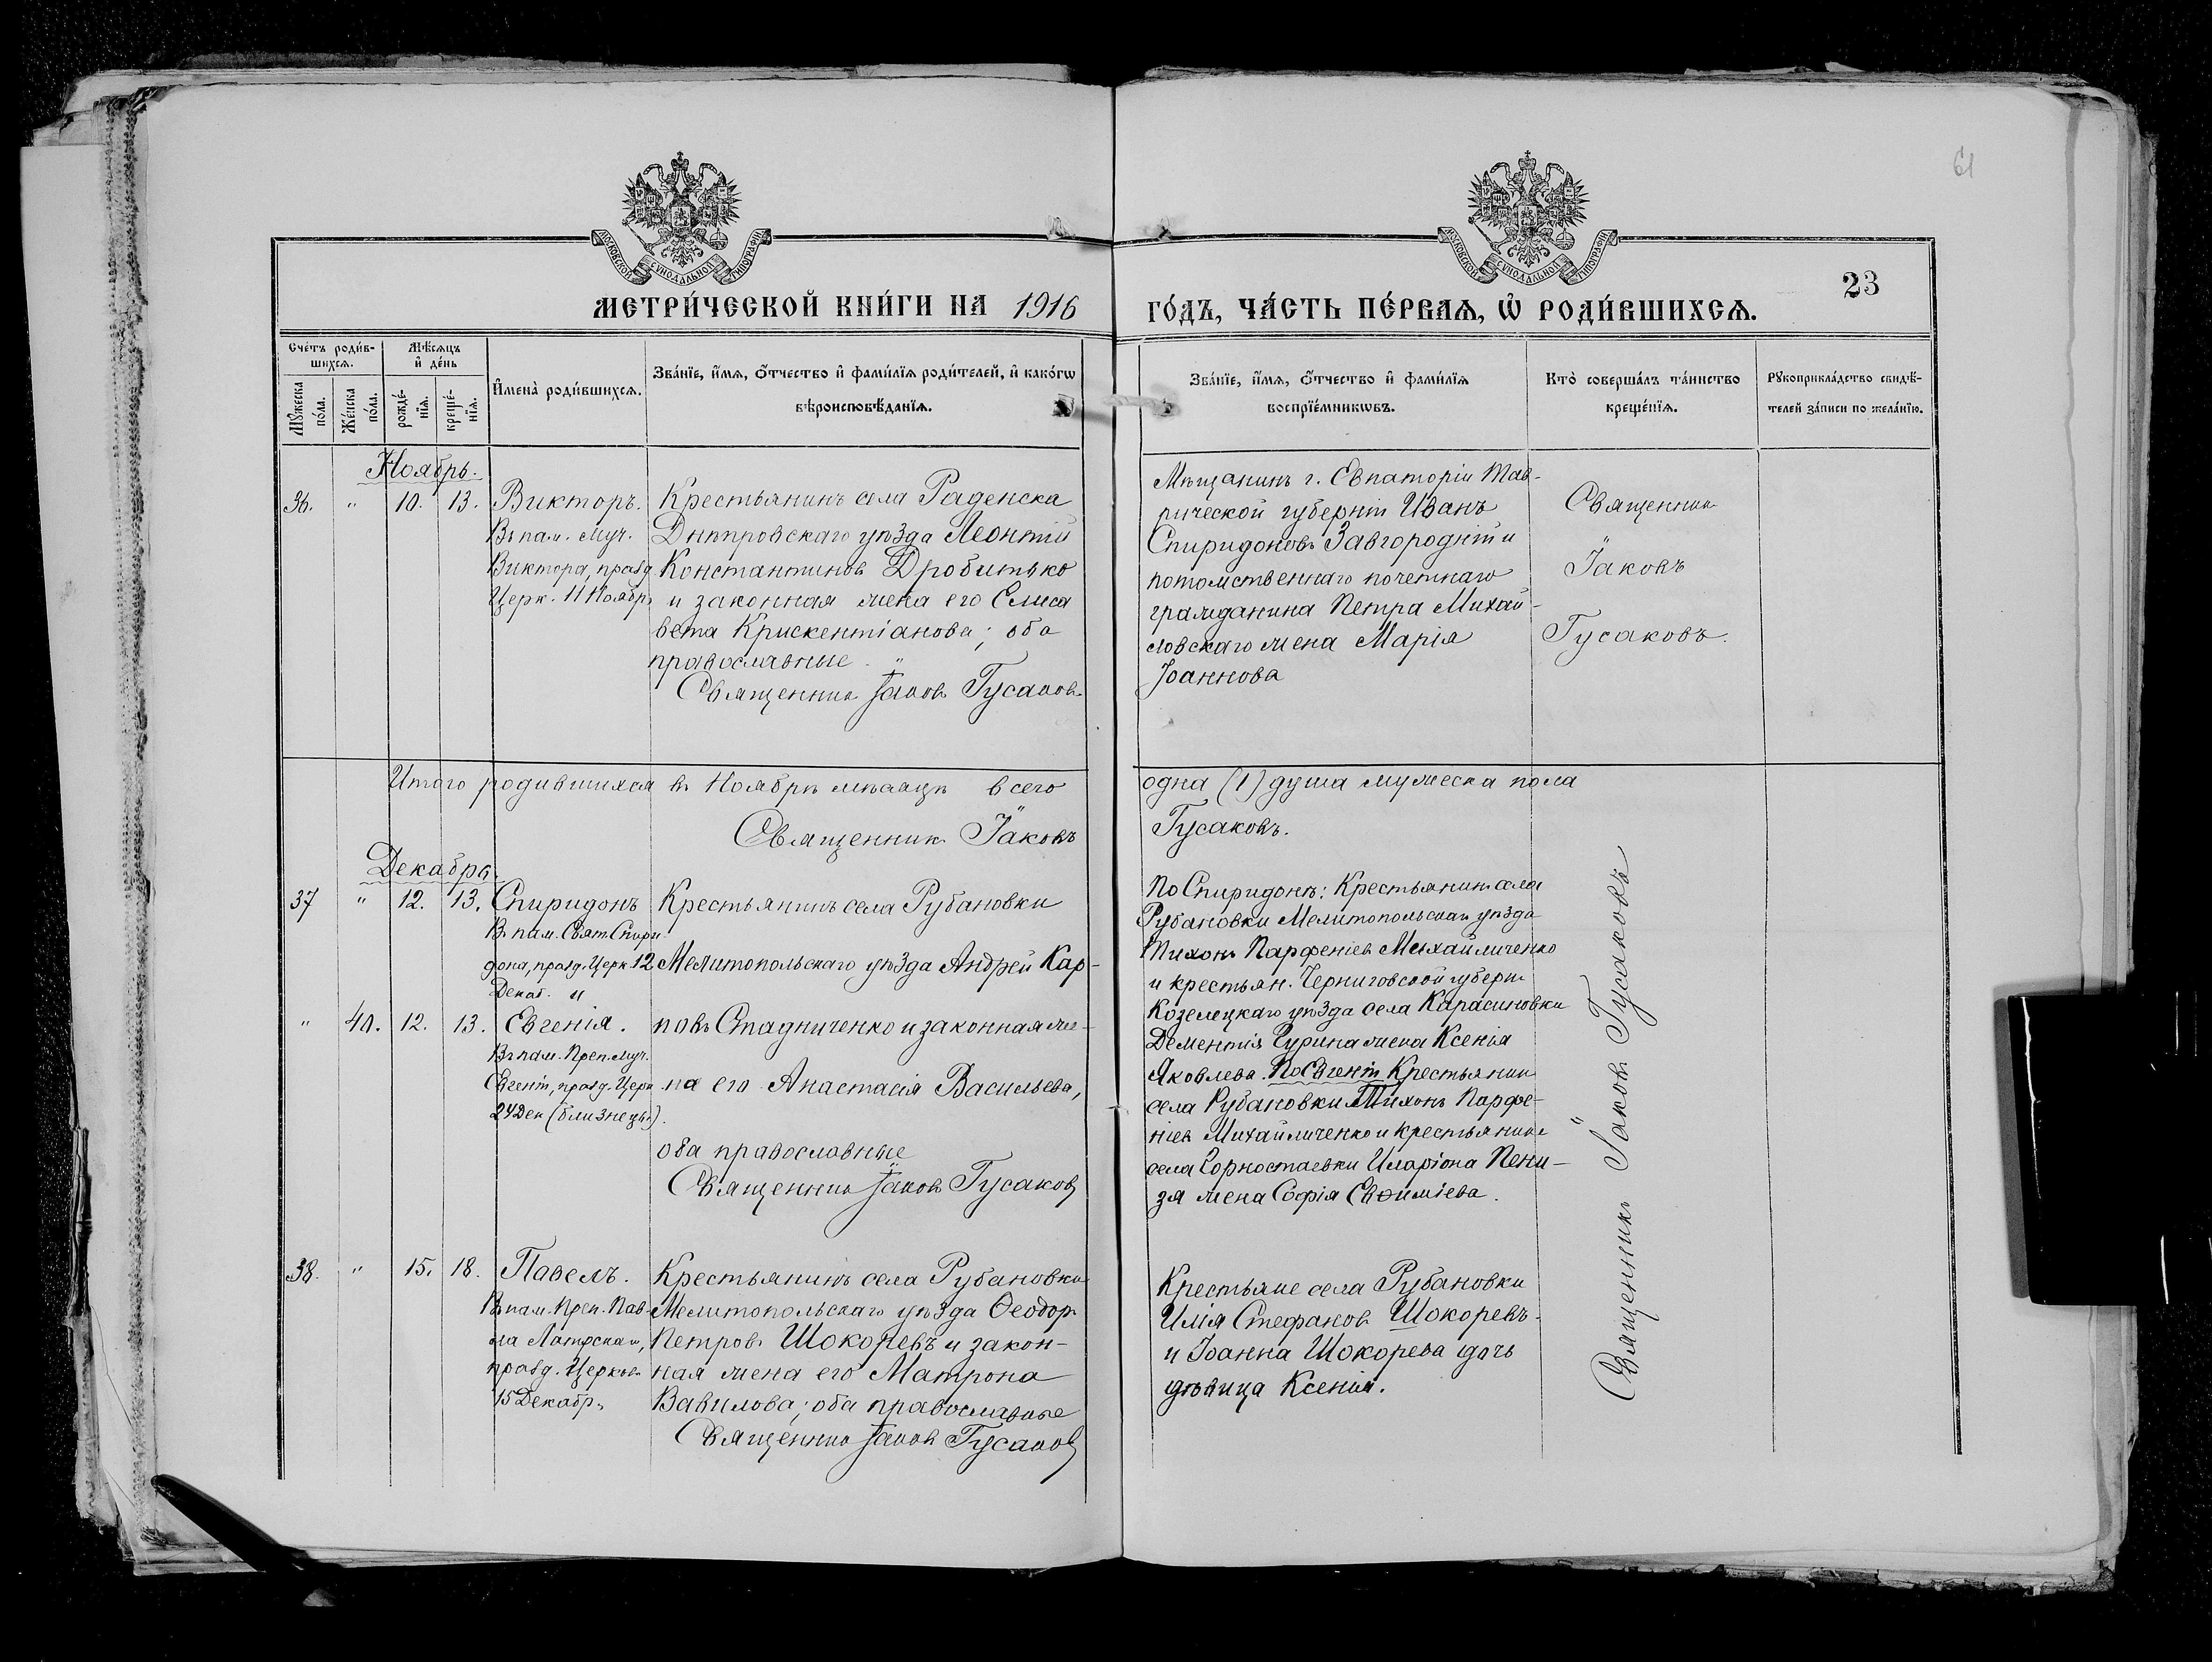 61
МОСКОВСКОЙ СѴНОДАЛЬНОЙ ТИПОГРАФІИ
МОСКОВСКОЙ СѴНОДАЛЬНОЙ ТИПОГРАФІИ
23
МЕТРИ́ЧЕСКОЙ КНИ́ГИ НА 1916
ГО́ДЪ, ЧА́СТЬ ПЕ́РВАѦ, Ѡ҆ РОДИ́ВШИХСѦ.
Сче́тъ роди́в-
шихсѧ.
Мꙋ́жеска по́ла.
Же́нска по́ла.
Мѣ́сѧцъ
и҆ де́нь
рожде́-
нїѧ.
креще́-
нїѧ.
И҆мена̀ роди́вшихсѧ.
Зва́нїе, и҆́мѧ, ѻ҆́тчество и҆ фами́лїѧ роди́телей, и҆ како́гѡ
вѣроисповѣ́данїѧ.
Зва́нїе, и҆́мѧ, ѻ҆́тчество и҆ фами́лїѧ
воспрїе́мникѡвъ.
Кто̀ соверша́лъ та́инство
креще́нїѧ.
Рꙋкоприкла́дство свидѣ́-
телей за́писи по жела́нїю.
Ноябрь.
36. " 10. 13. Викторъ.
Въ пам. муч.
Виктора, празд.
Церк. 11 Ноябр.
Крестьянинъ села Раденска
Днѣпровскаго уѣзда Леонтій
Константиновъ Дробитько
и законная жена его Елиса
вета Крискентіанова; оба
православные.
Священникъ Іаковъ Гусаковъ
Мѣщанинъ г. Евпаторіи Тав-
рической губерніи Иванъ
Спиридоновъ Завгородній и
потомственнаго почетнаго
гражданина Петра Михай-
ловскаго жена Марія
Іоаннова
Священникъ
Іаковъ
Гусаковъ.
Итого родившихся въ Ноябрѣ мѣсяцѣ всего
одна (1) душа мужеска пола
Священникъ Іаковъ
Гусаковъ.
Декабрь.
37 " 12. 13. Спиридонъ
В пам. Свят. Спири
дона, празд. Церк. 12
Декаб. и
" 40. 12. 13. Евгенія.
Въ пам. Преп. муч.
Евгеніи, празд. Церк.
24 Дек (близнецы).
Крестьянинъ села Рубановки
Мелитопольскаго уѣзда Андрей Кар-
повъ Стадниченко и законная же-
на его Анастасія Васильева,
оба православные
Священникъ Іаковъ Гусаковъ
По Спиридонѣ: Крестьянинъ села
Рубановки Мелитопольскаго уѣзда
Тихонъ Парфеніевъ Михайличенко
и крестьян. Черниговской губерн.
Козелецкаго уѣзда села Карасиновки
Дементія Гурина жена Ксенія
Яковлева. По Евгеніи Крестьянинъ
села Рубановки Тихонъ Парфе-
ніевъ Михайличенко и крестьянина
села Горностаевки Иларіона Пени-
зя жена Софія Евѳиміева.
38. " 15. 18. Павелъ.
Въ пам. Преп. Пав-
ла Латрскаго,
празд. Церковь
15 Декабр.
Крестьянинъ села Рубановки
Мелитопольскаго уѣзда Ѳеодоръ
Петровъ Шокоревъ и закон-
ная жена его Матрона
Вавилова; оба православные
Священникъ Іаковъ Гусаковъ
Крестьяне села Рубановки
Илія Стефановъ Шокоревъ
и Іоанна Шокорева дочь
дѣвица Ксенія.
Священникъ Іаковъ Гусаковъ